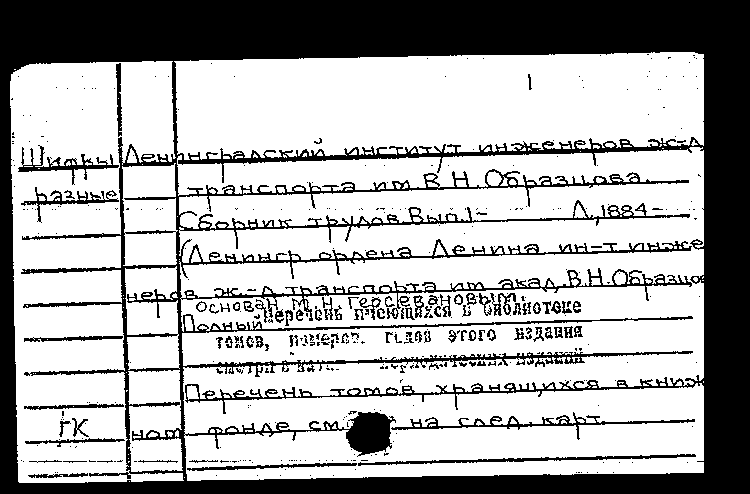 1
Шифры Ленинградский институт инженеров ж-д
разные транспорта им В.Н.Образцова.
Сборник трудов Вып.1- Л,1884-
(Ленингр ордена Ленина ин-т инже
неров ж.-д транспорта им акад. В.Н.Образцов
основан М.Н.Герсевановым.
Полный перечень имеющихся в библиотеке
томов, номеров, годов этого издания
смотри в катал. периодических изданий
Перечень томов, хранящихся в книж
ГК ном фонде, см. на след. карт.